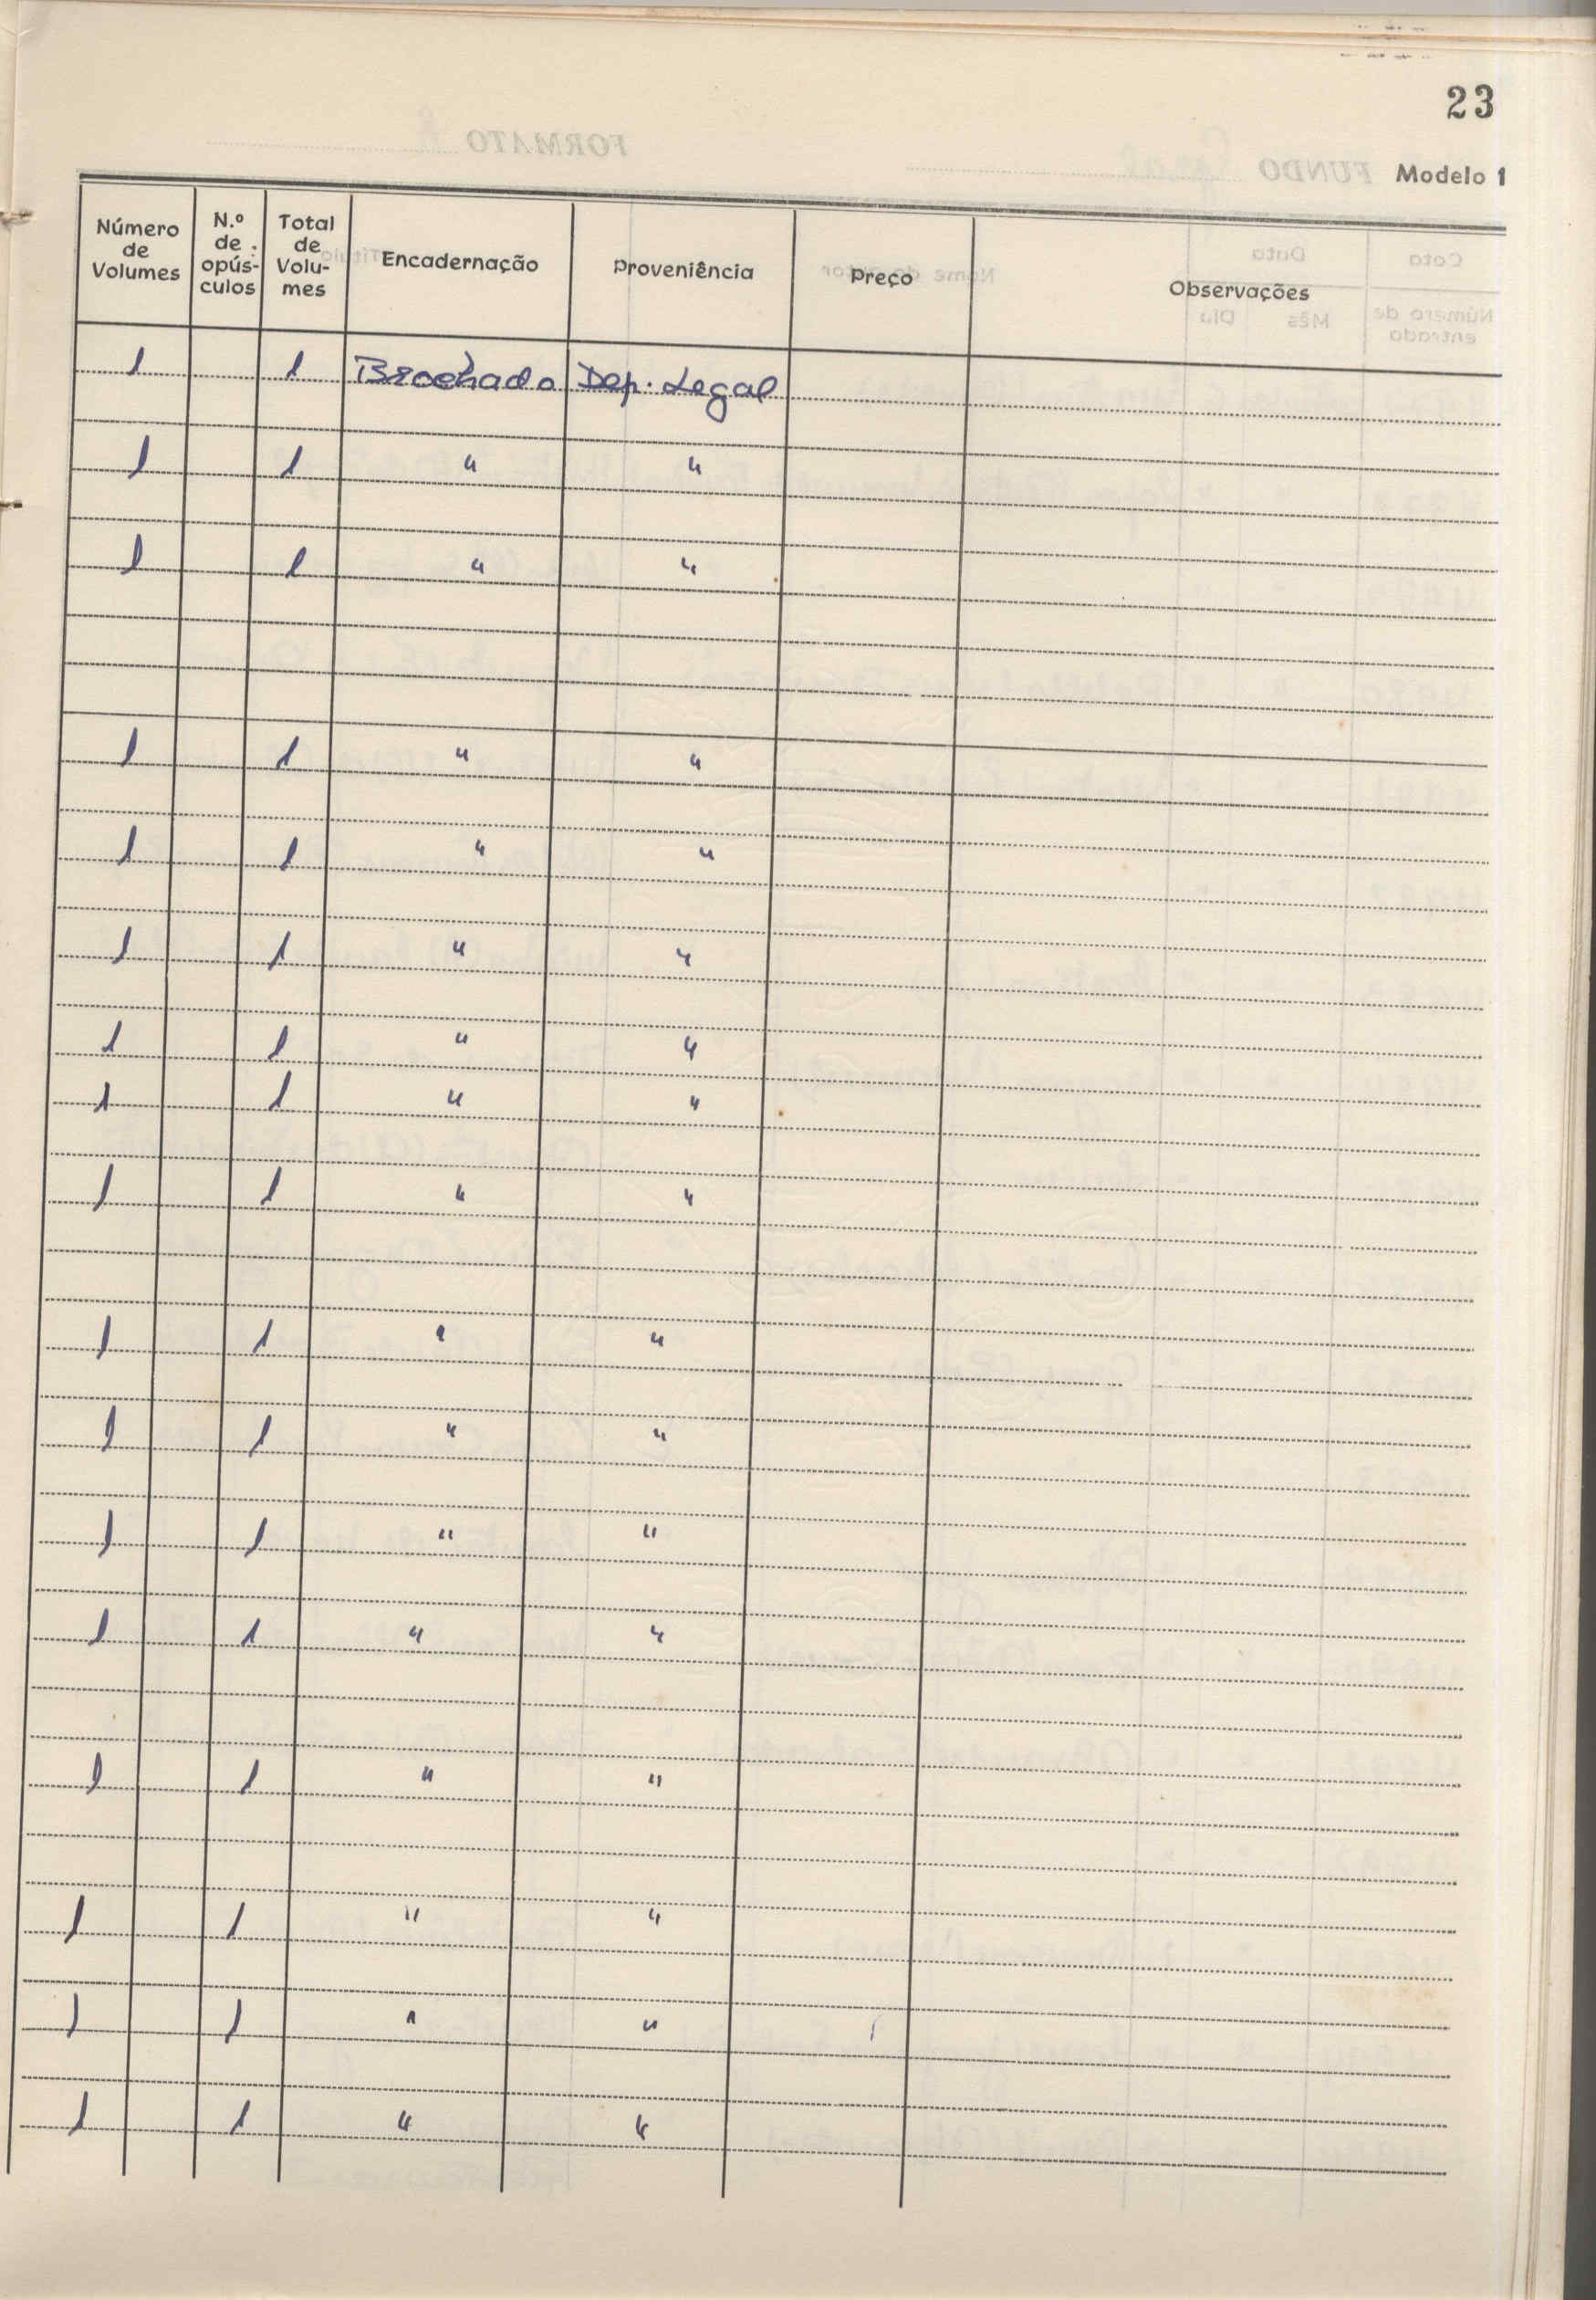 23
Modelo 1
Número de Volumes N.º de opús-culos Total de Volu-mes Encadernação Proveniência Preço Observações
1 1 Brochado Dep. Legal
1 1 " "
1 1 " "
1 1 " "
1 1 " "
1 1 " "
1 1 " "
1 1 " "
1 1 " "
1 1 " "
1 1 " "
1 1 " "
1 1 " "
1 1 " "
1 1 " "
1 1 " "
1 1 " "